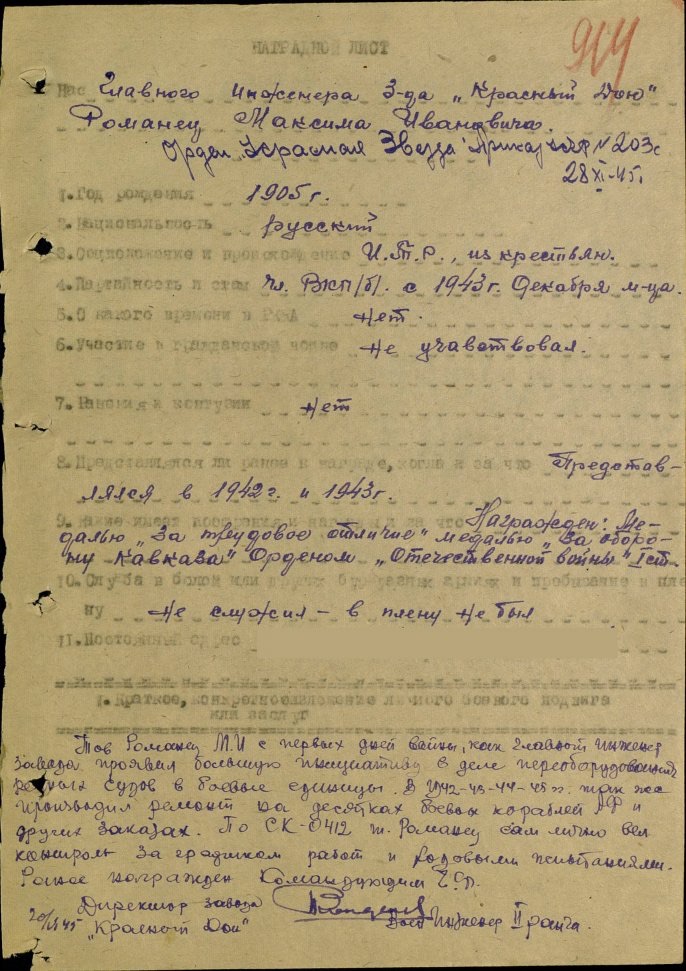 914
НАГРАДНОЙ ЛИСТ
На Главного инженера З-да „Красный Дон"
Романец Максима Ивановича.
Орден „Красная Звезда" Приказ № 203с
28 XI-45г.
1. Год рождения 1905 г.
2. Национальность русский
3. Соцположение и происхождение И.Т.Р., из крествян.
4. Партийность и стаж Чл. ВКП/б/. с 1943г. Декабря м-ца.
5. С какого времени в РККА Нет.
6. Участие в гражданской войне Не учавствовал.
7. Ранения и контузии Нет
8. Представлялся ли ранее к награде, когда и за что Представ-
лялся в 1942г. и 1943г.
9. Какие имеет поощрения и награды и за что Награжден: Ме-
далью „За трудовое отличие" медалью „За оборо-
ну Кавказа" Орденом „Отечественной войны" I ст.
10. Служба в белой или других буржуазных армиях и пребывание в пле-
ну Не служил – в плену не был
11. Постоянный адрес
1. Краткое, конкретное изложение личного боевого подвига
или заслуг
Тов Романец М.И с первых дней войны, как Главный Инженер
завода проявил большую инициативу в деле переоборудования
речных судов в боевые единицы. В 1942-43-44-45 гг. так же
производил ремонт на десятках боевых кораблей и
других заказах. По СК-0412 т. Романец сам лично вел
контроль за графиком работ и ходовыми испытаниями.
Ранее награжден Командующим
Директор завода
20/ 45 „Красный Дон" Инженер II ранга.